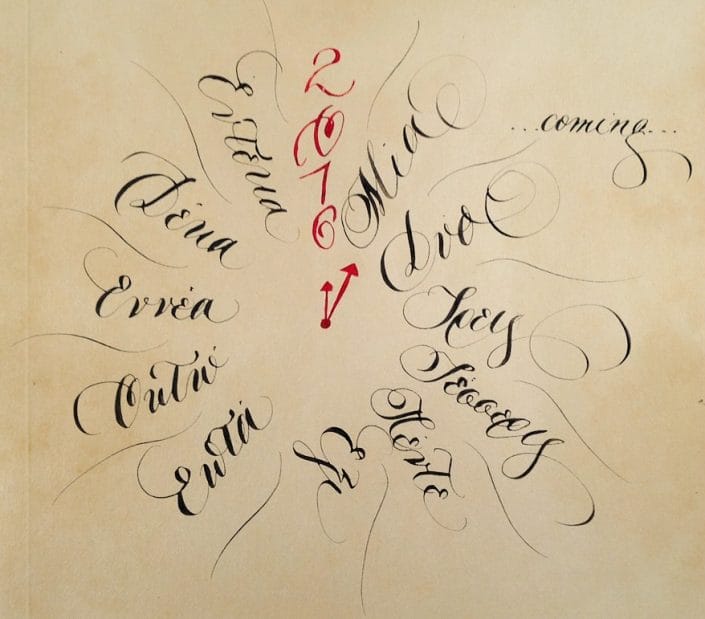 2016
Μία
...coming...
Δύο
Τρεις
Τέσσερις
Πέντε
Έξι
Επτά
Οκτώ
Εννέα
Δέκα
Εντεκα